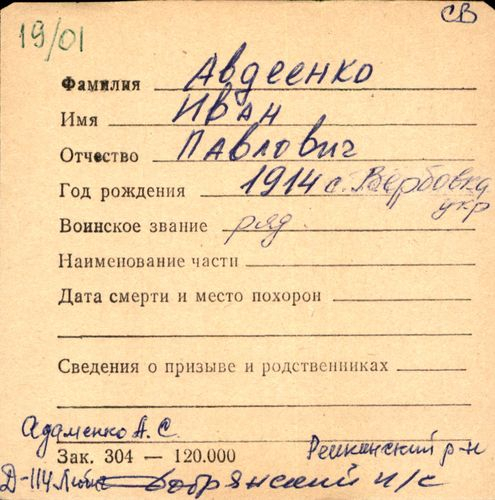 19/01
СВ
Фамилия Авдеенко
Имя Иван
Отчество Павлович
Год рождения 1914 с. Вербовка
укр
Воинское звание ряд.
Наименование части
Дата смерти и место похорон
Сведения о призыве и родственниках
Адаменко А. С.
Зак. 304 — 120.000
р-н
Д-114